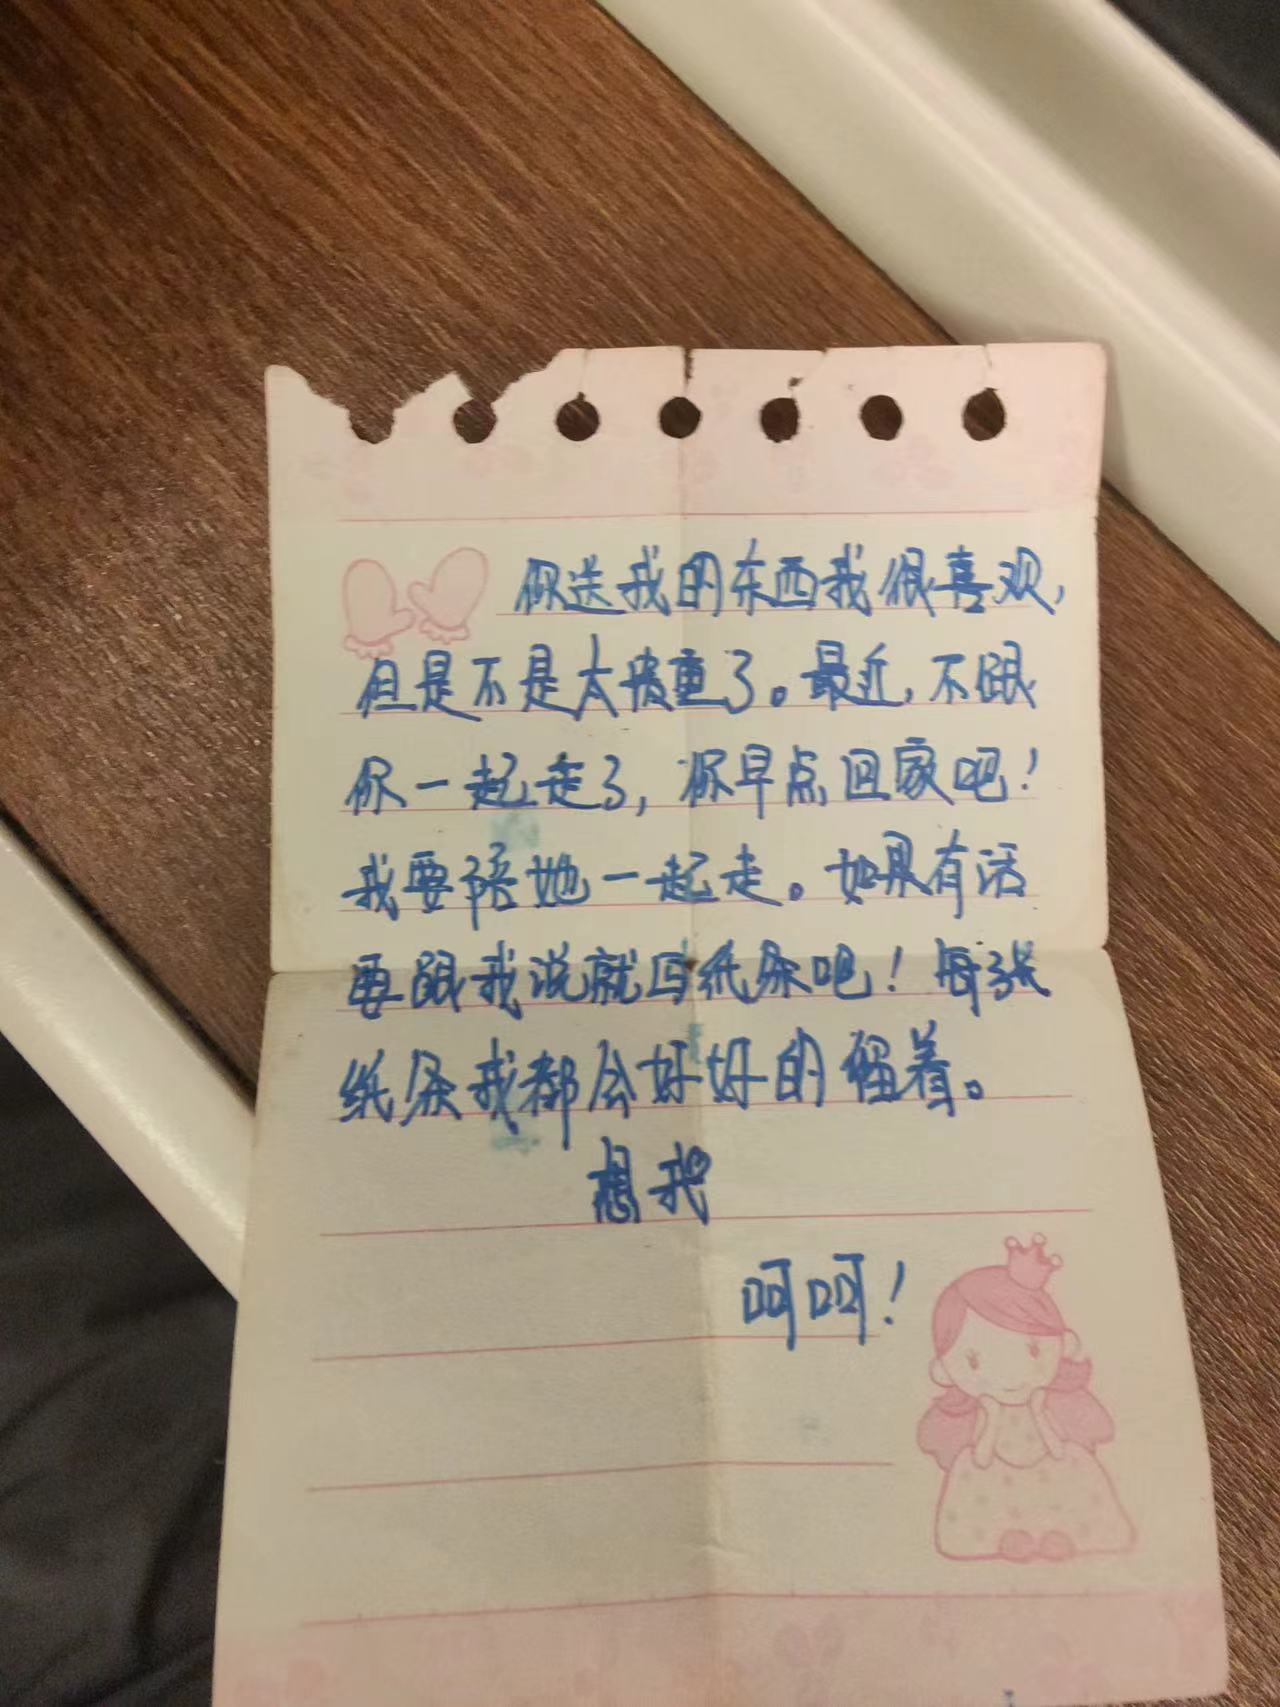 你送我的东西我很喜欢，
但是不是太贵重了。最近，不跟
你一起走了，你早点回家吧！
我要陪她一起走。如果有话
要跟我说就写纸条吧！每张
纸条我都会好好的留着。
想我
呵呵！